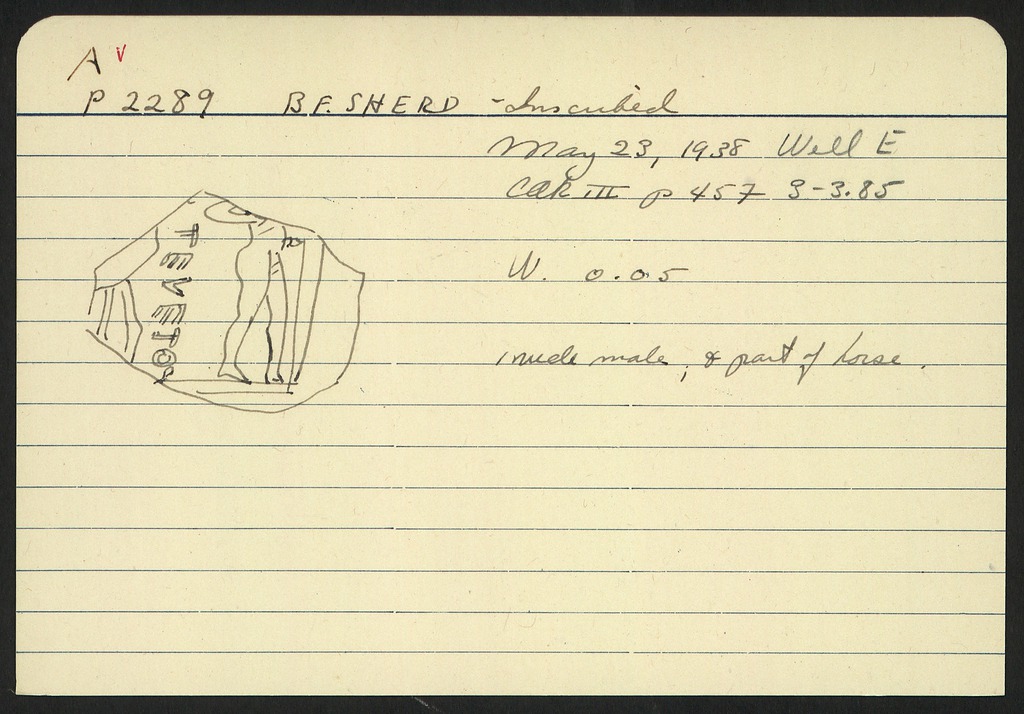 A V
P 2289 B.F. SHERD - Inscribed
May 23, 1938 Well E
CAR III p 457 3-3.85
W. 0.05
1 nude male, & part of horse.